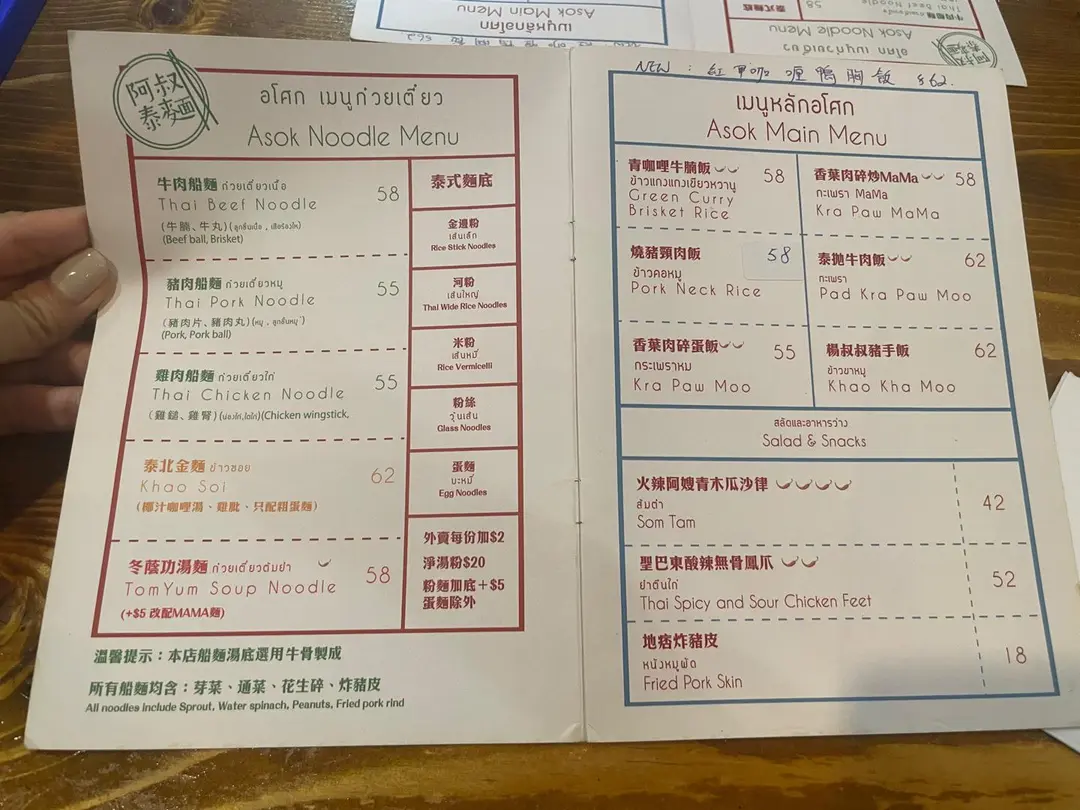 เมนูหลักอโศก
Asok Main Menu
อโศก เมนูก๋วยเตี๋ยว
Asok Noodle Menu
58
阿叔
泰麵
อโศก เมนูก๋วยเตี๋ยว
Asok Noodle Menu
牛肉船麵 ก๋วยเตี๋ยวเนื้อ 58
Thai Beef Noodle
(牛腩、牛丸)(ลูกชิ้นเนื้อ , เสือร้องไห้)
(Beef ball, Brisket)
豬肉船麵 ก๋วยเตี๋ยวหมู 55
Thai Pork Noodle
(豬肉片、豬肉丸)(หมู , ลูกชิ้นหมู)
(Pork, Pork ball)
雞肉船麵 ก๋วยเตี๋ยวไก่ 55
Thai Chicken Noodle
(雞鎚、雞腎)(น่องไก่,ไตไก่)(Chicken wingstick,
泰北金麵 ข้าวซอย 62
Khao Soi
(椰汁咖喱湯、雞肶、只配粗蛋麵)
冬蔭功湯麵 ก๋วยเตี๋ยวต้มยำ 58
TomYum Soup Noodle
(+$5 改配MAMA麵)
泰式麵底
金邊粉
เส้นเล็ก
Rice Stick Noodles
河粉
เส้นใหญ่
Thai Wide Rice Noodles
米粉
เส้นหมี่
Rice Vermicelli
粉絲
วุ้นเส้น
Glass Noodles
蛋麵
บะหมี่
Egg Noodles
外賣每份加$2
淨湯粉$20
粉麵加底+$5
蛋麵除外
溫馨提示：本店船麵湯底選用牛骨製成
所有船麵均含：芽菜、通菜、花生碎、炸豬皮
All noodles include Sprout, Water spinach, Peanuts, Fried pork rind
NEW : 紅甲咖喱鴨胸飯 $62.
เมนูหลักอโศก
Asok Main Menu
青咖喱牛腩飯 58
ข้าวแกงแกงเขียวหวานู
Green Curry
Brisket Rice
香葉肉碎炒MaMa 58
กะเพรา MaMa
Kra Paw MaMa
燒豬頸肉飯 58
ข้าวคอหมู
Pork Neck Rice
泰拋牛肉飯 62
กะเพรา
Pad Kra Paw Moo
香葉肉碎蛋飯 55
กระเพราหม
Kra Paw Moo
楊叔叔豬手飯 62
ข้าวขาหมู
Khao Kha Moo
สลัดและอาหารว่าง
Salad & Snacks
火辣阿嫂青木瓜沙律 42
ส้มตำ
Som Tam
聖巴東酸辣無骨鳳爪 52
ยำตีนไก่
Thai Spicy and Sour Chicken Feet
地痞炸豬皮 18
หนังหมูผัด
Fried Pork Skin